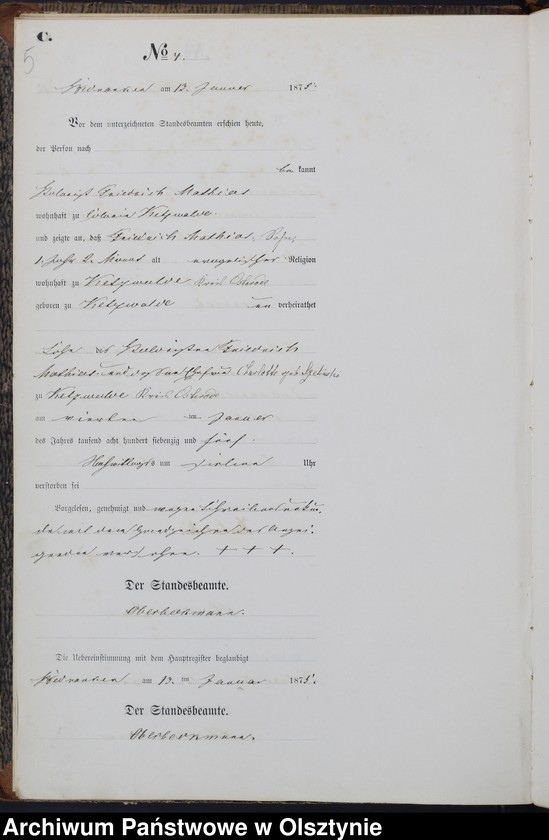 C.
5
No 4.
am 13. Januar 1875.
Vor dem unterzeichneten Standesbeamten erschien heute,
der Person nach
be kannt
Friedrich Mathias
wohnhaft zu Colonie Ketzwalde.
und zeigte an, daß Friedrich Mathias, Sohn,
1. Jahr 2. Monat alt evangelischer Religion
wohnhaft zu Ketzwalde Kreis Osterode
geboren zu Ketzwalde un verheirathet
Sohn des Friedrich
Mathias und dessen Ehefrau Charlotte geb.
zu Ketzwalde Kreis Osterode
am vierten ten Januar
des Jahres tausend acht hundert siebenzig und fünf.
Nachmittags um Uhr
verstorben sei
Vorgelesen, genehmigt und wegen Schreibensunkun-
de mit dem Handzeichen des Anzei-
genden versehen. + + +.
Der Standesbeamte.
Oberbeckmann.
Die Uebereinstimmung mit dem Hauptregister beglaubigt
am 13. ten Januar 1875.
Der Standesbeamte.
Oberbeckmann.
Archiwum Państwowe w Olsztynie